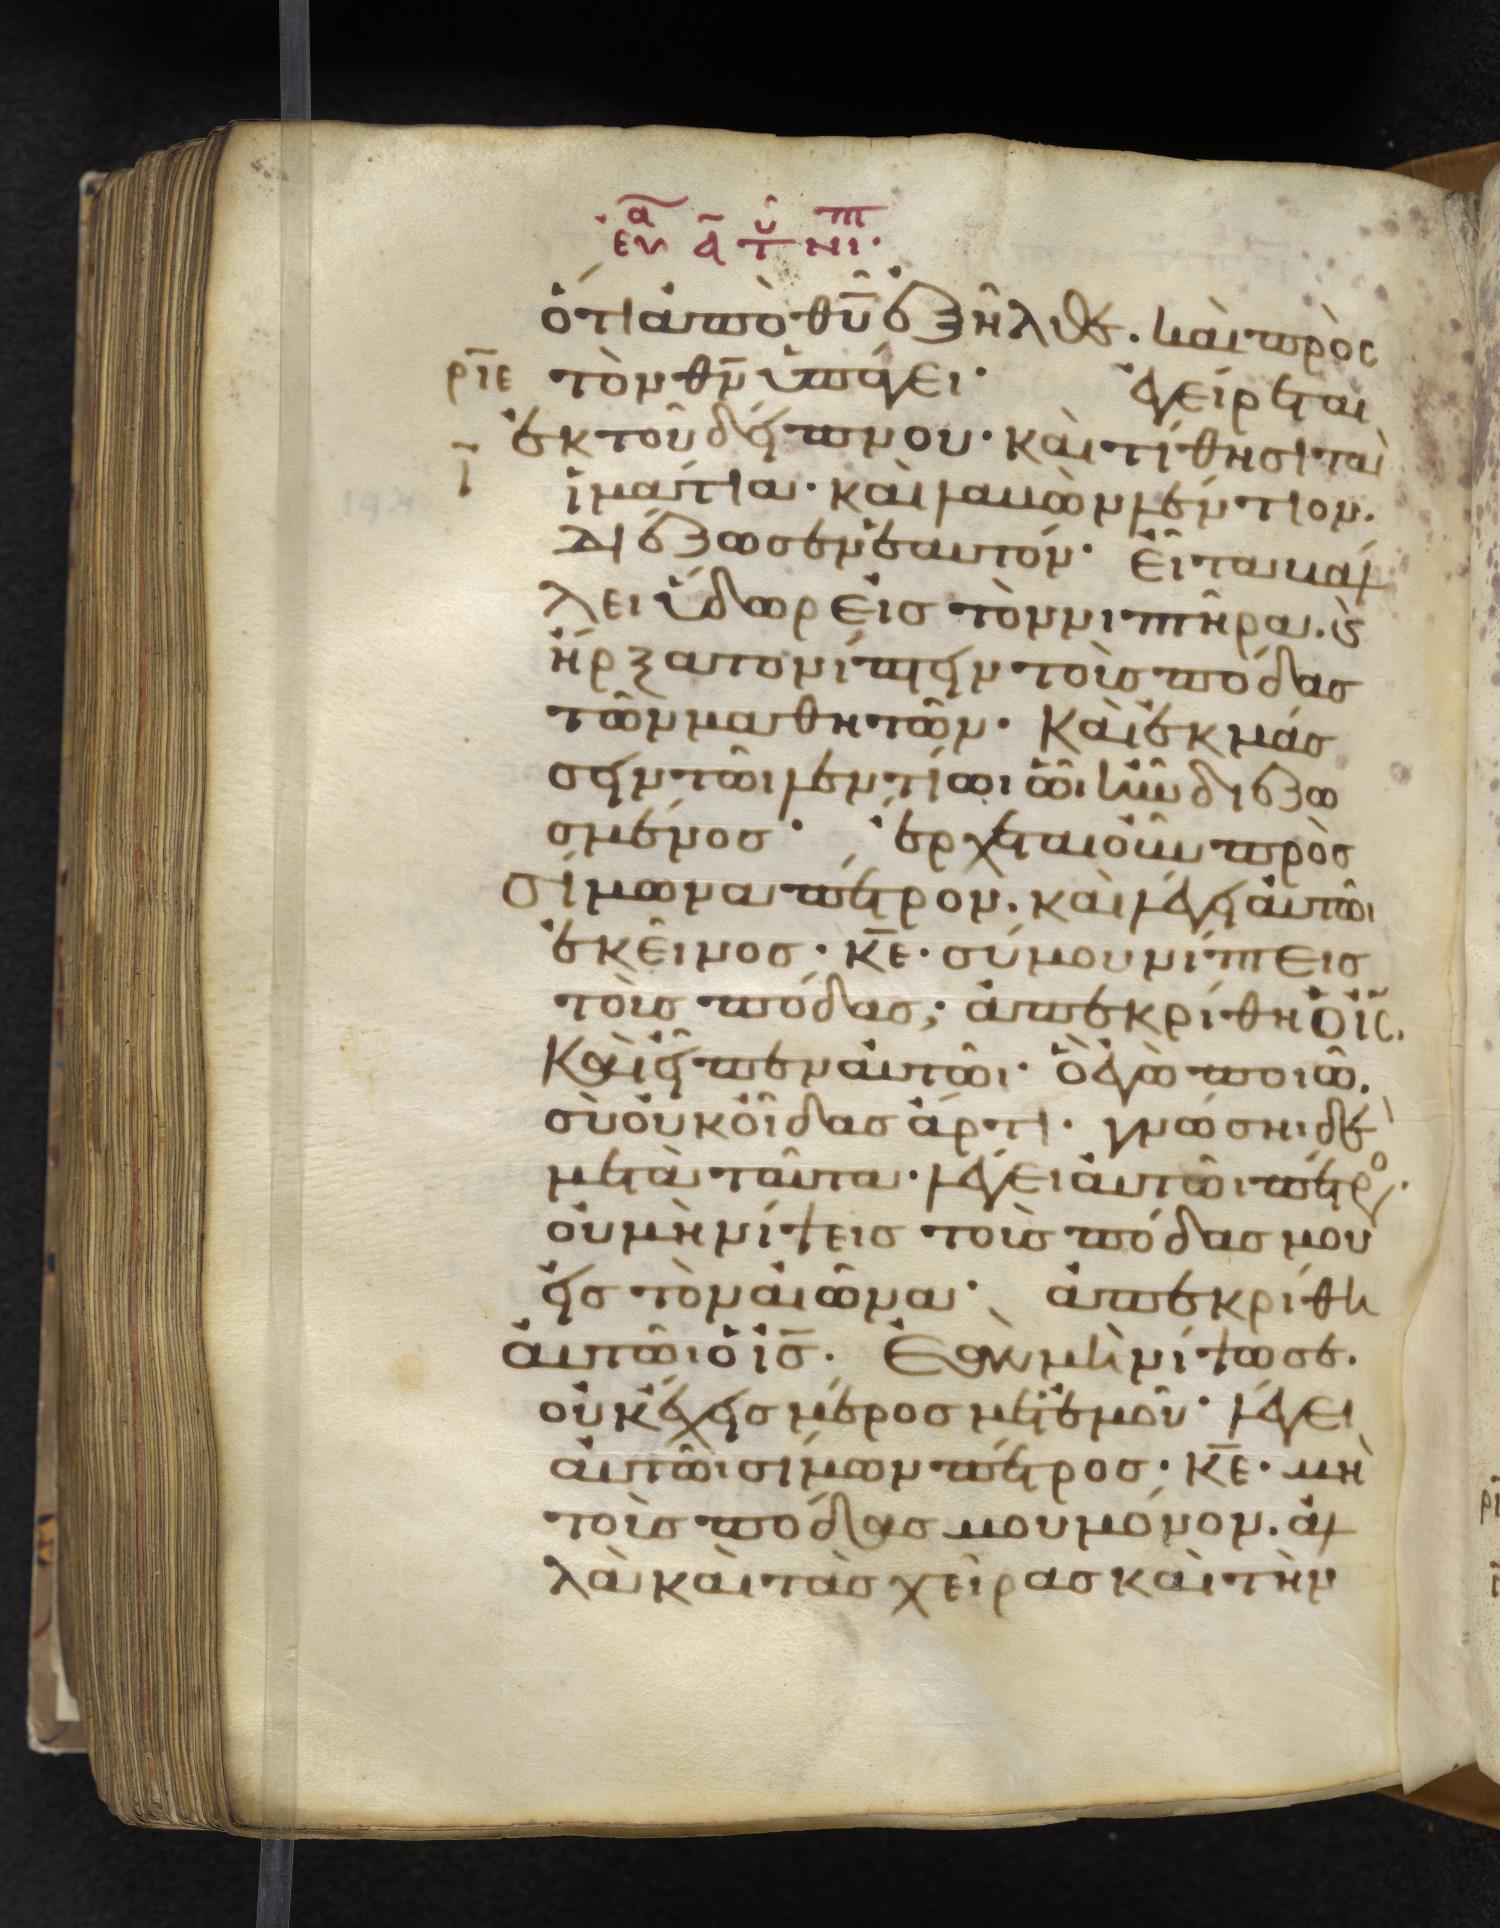 ὅτι ἀπὸ θῦ ἐξῆλθε. καὶ πρὸς
ρ̅ι̅ε̅ τὸν θν̅ ὑπάγει· ἐγείρεται
ἐκ τοῦ δείπνου· καὶ τίθησι τὰ
ι̅ ἱμάτια· καὶ λαβὼν λέντιον.
διέζωσεν ἑαυτόν· εἶτα βάλ
λει ὕδωρ εἰς τὸν νιπτῆρα. ϗ
ἤρξατο νίπτειν τοὺς πόδας
τῶν μαθητῶν· καὶ ἐκμάσ
σειν τῶι λεντίωι ὧι ἦν διεζω
σμένος· ἔρχεται οὖν πρὸς
σίμωνα πέτρον. καὶ λέγει αὐτῶι
ἐκεῖνος· κε̅· σύ μου νίπτεις
τοὺς πόδας; ἀπεκρίθη ὁ ἰς̅.
καὶ εἶπεν αὐτῶι· ὃ ἐγὼ ποιῶ.
σὺ οὐκ οἶδας ἄρτι· γνώσηι δὲ
μετὰ ταῦτα· λέγει αὐτῶι πέτρο·
οὐ μὴ νίψεις τοὺς πόδας μου
εἰς τὸν αἰῶνα· ἀπεκρίθη
αὐτῶι ὁ ἰς̅. Ἐὰν μὴ νίψω σε.
οὐκ ἔχεις μέρος μετ' ἐμοῦ· λέγει
αὐτῶι σίμων πέτρος· κε̅· μὴ
τοὺς πόδας μου μόνον. ἀλ
λὰ καὶ τὰς χεῖρας καὶ τὴν